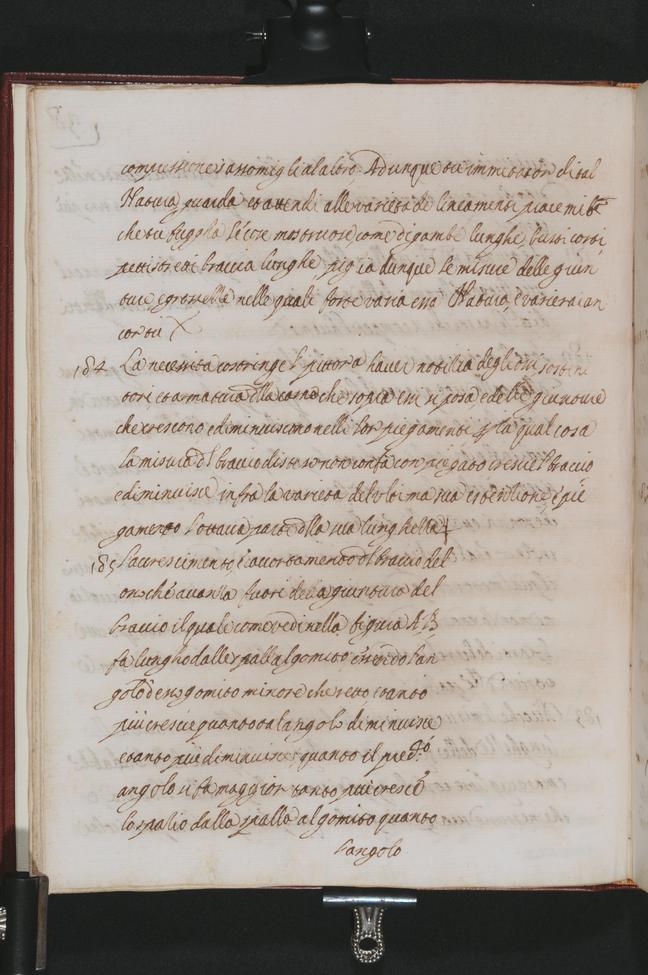 complessione s'assomigli al altro. Adunque tu immitator di tal
Natura, guarda et attendi alle varietà de lineamenti piacemi bē
che tu fugghi le cose mostruose come di gambe lunghe, busti corti,
petti stretti braccia lunghe, piglia dunque le misure delle giun
ture, e grossezze nelle quali forte varia essa Natura, e varierai an
cor tu X
184 La necessita costringe l pittor a haver notitia degli ossi sosteni
tori, et armatura della carne che sopra essi si posa, e delle giunture
che crescono e diminuiscono nelli lor piegamenti, p la qual cosa
la misura dl braccio disteso non confa con piegato cresce l braccio
e diminuisce infra la varieta del ultima sua estentione, e pie
gamento l'ottava parte dlla sua lunghezza
185 L'accrescimento e l'accortamento dl braccio del
osso ch'avanza fuori della giuntura del
braccio il quale come vedi nella figura A.B
fa lungho dalle spalle al gomito, essendo l'an
golo d'esso gomito minore che retto, e tanto
più cresce quanto tal angolo diminuisce
e tanto più diminuisce, quanto il pred.º
angolo si fa maggior tanto più cresce
lo spatio dalla spalla al gomito quanto
l'angolo